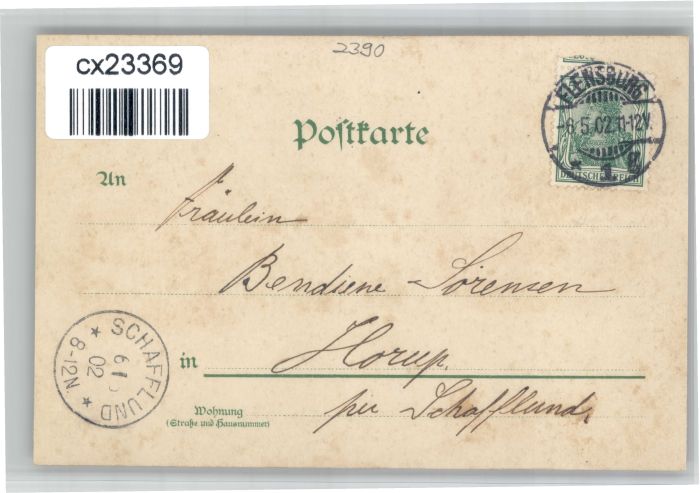 cx23369
2390
FLENSBURG
-6.5.02.11-12V.
* 1. g
DEUTSCHES REICH
Postkarte
An
Fräulein
Bendiene Sörensen
in Horup.
per Schafflund.
Wohnung
(Straße und Hausnummer)
* SCHAFFLUND *
6
02
8-12N